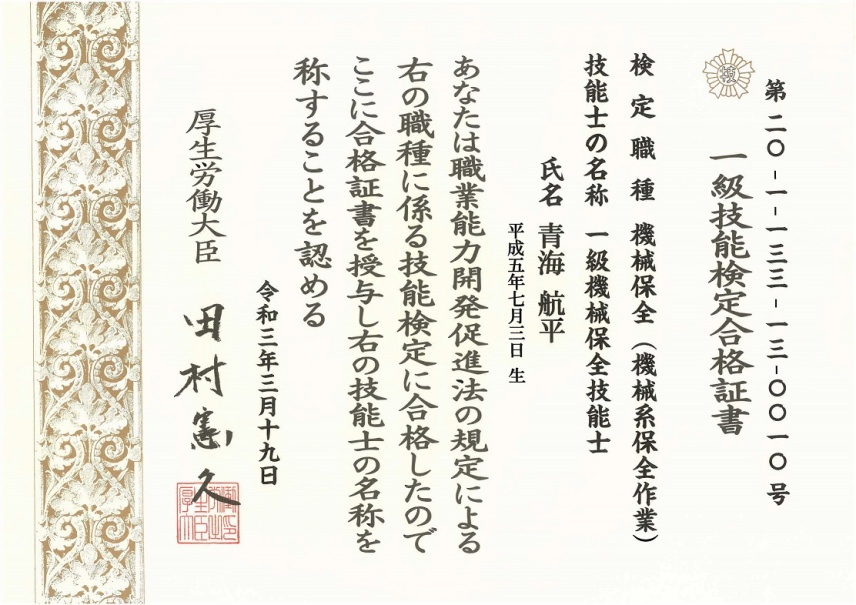 第二〇-一-一三三-一三-〇〇一〇号
技
一級技能検定合格証書
検定職種 機械保全（機械系保全作業）
技能士の名称 一級機械保全技能士
氏名 青海 航平
平成五年七月三日 生
あなたは職業能力開発促進法の規定による
右の職種に係る技能検定に合格したので
ここに合格証書を授与し右の技能士の名称を
称することを認める
令和三年三月十九日
厚生労働大臣 田村憲久